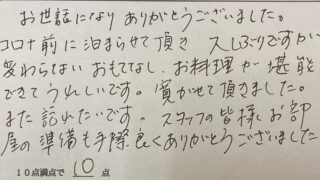 お世話になり ありがとうございました。
コロナ前に泊まらせて頂き 久しぶりですが
変わらない おもてなし、お料理が 堪能
できてうれしいです。寛がせて頂きました。
また訪れたいです。スタッフの皆様お部
屋の準備も手際良くありがとうございました
10点満点で 10 点